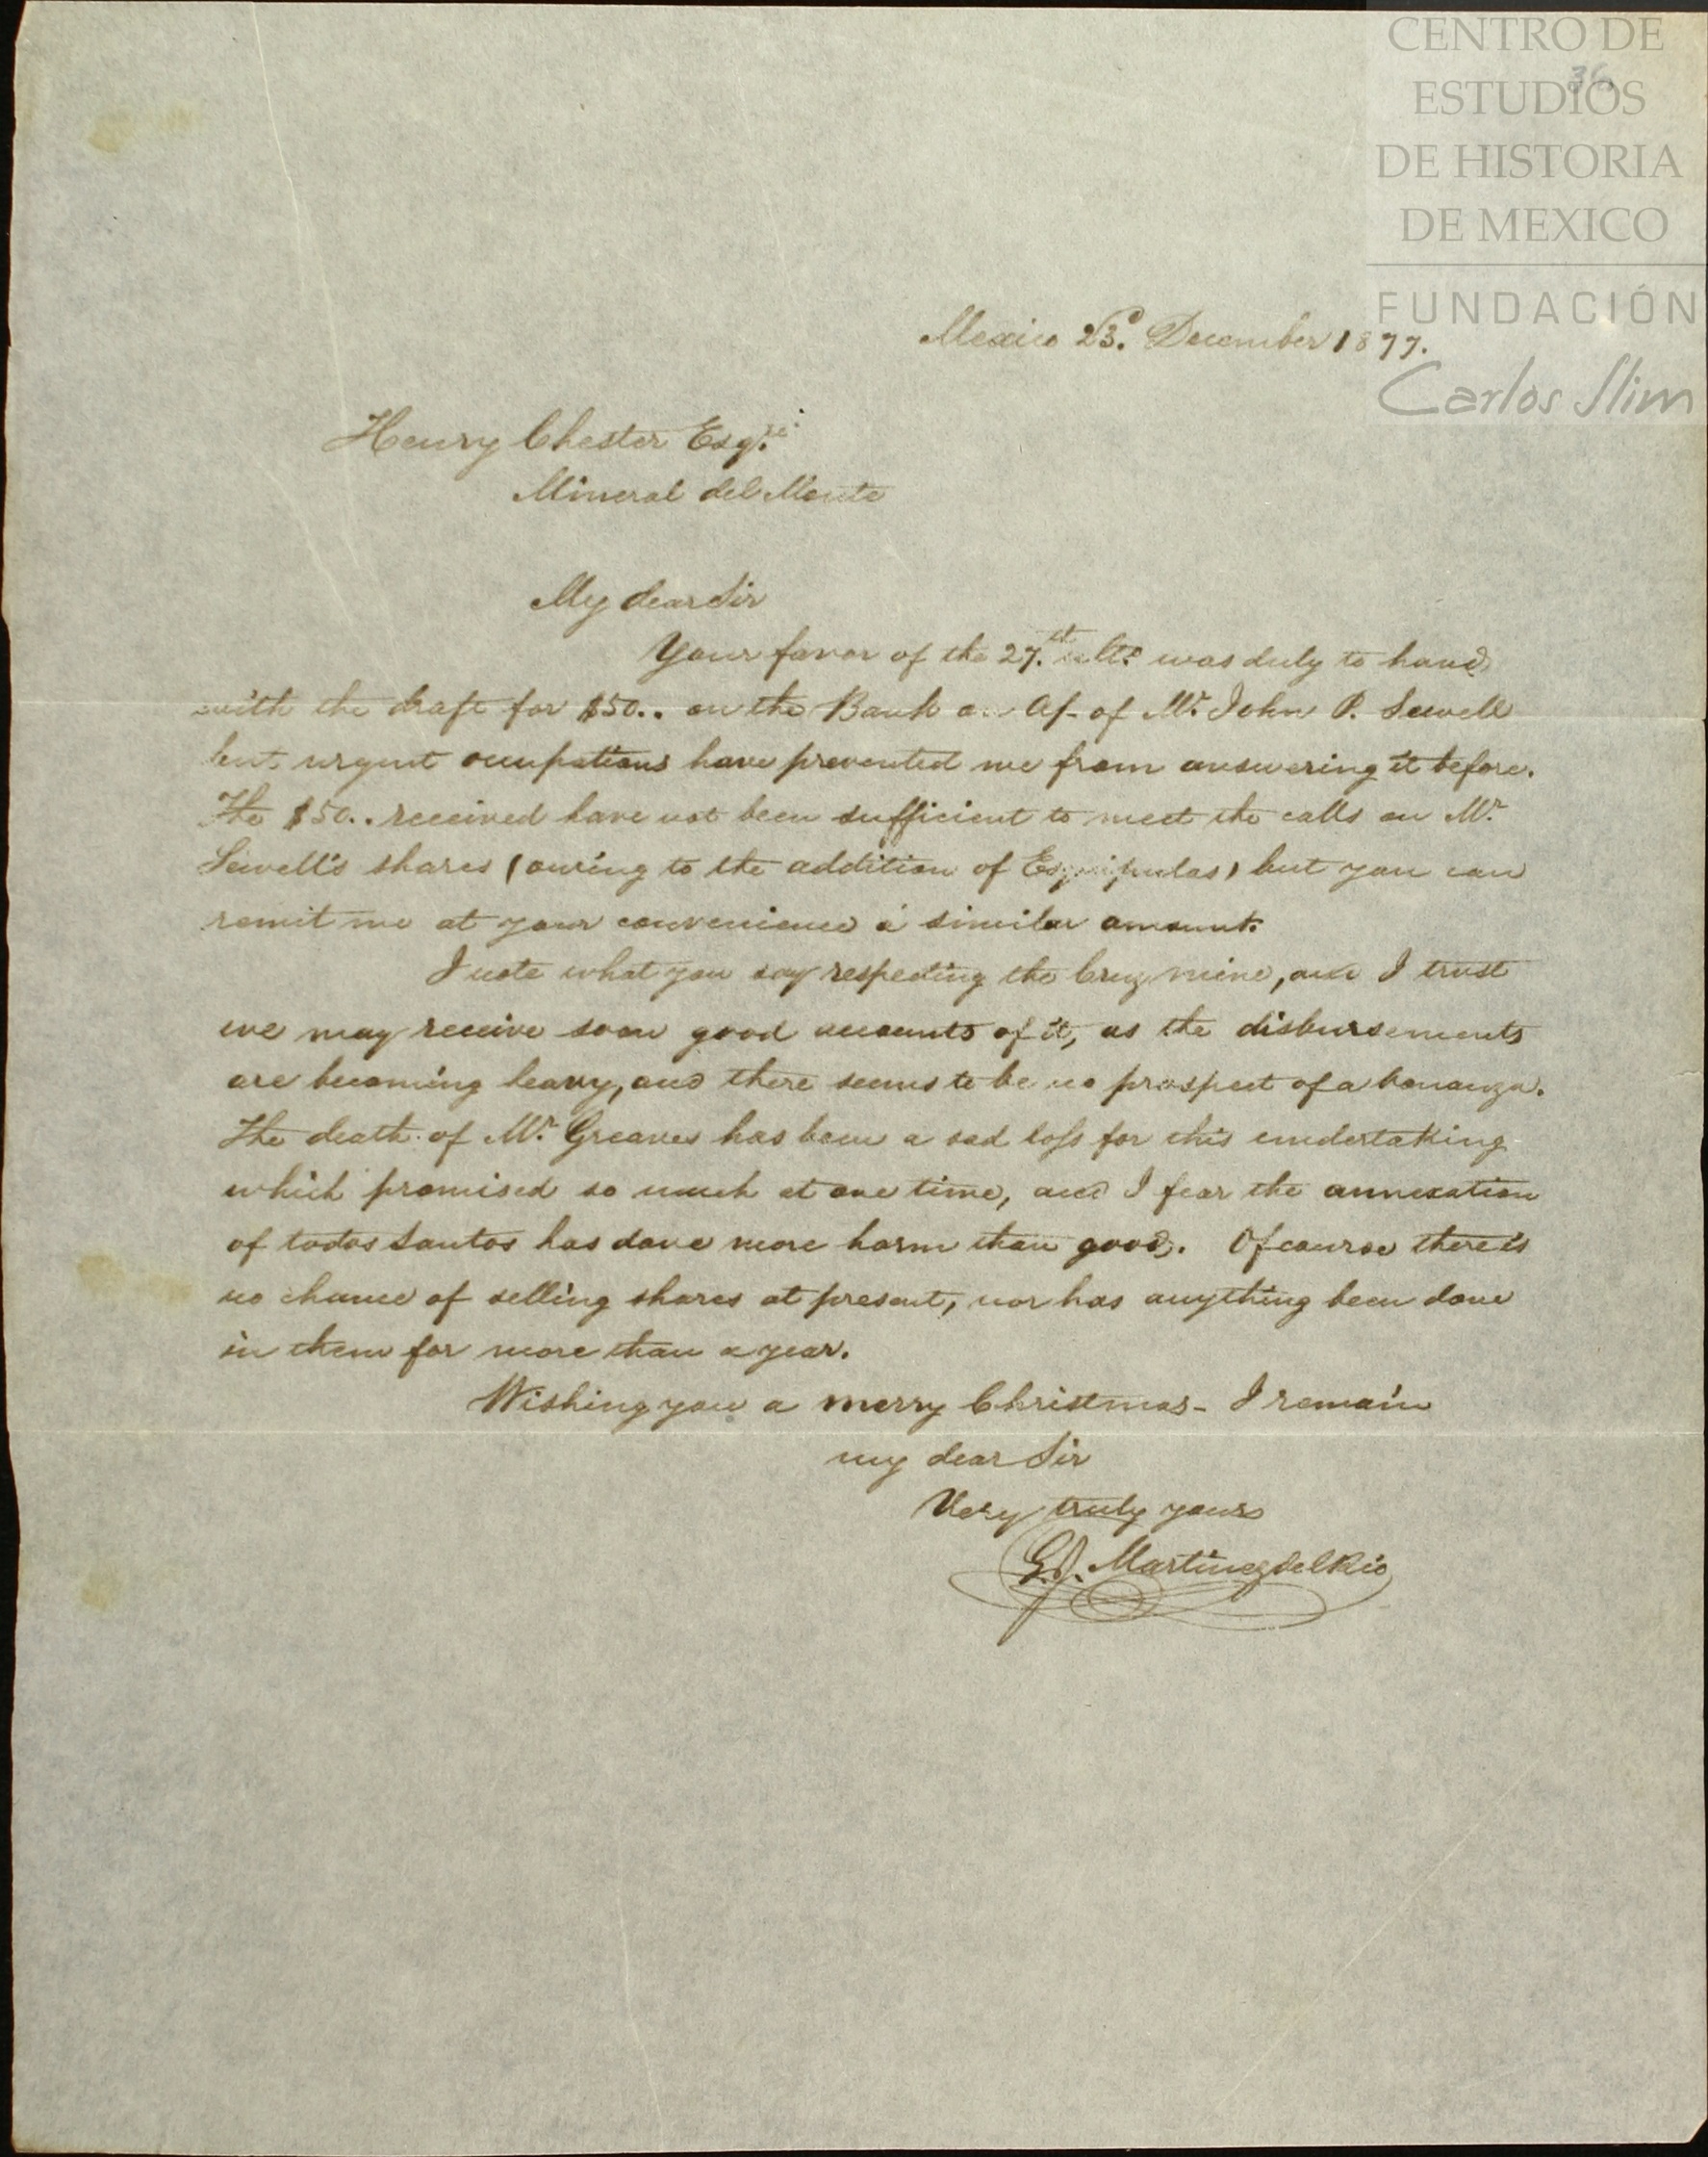 CENTRO DE
ESTUDIOS
DE HISTORIA
DE MEXICO
FUNDACIÓN
Carlos Slim
36
Mexico 23d. December 1877.
Henry Chester Esqre.
Mineral del Monte
My dear Sir
Your favor of the 27th. ulto. was duly to hand
with the draft for $50.. on the Bank on a/c of Mr. John P. Sewell
but urgent ocupations have prevented me from answering it before.
The $50.. received have not been sufficient to meet the calls on Mr.
Sewell's shares (owing to the addition of Esquipulas) but you can
remit me at your convenience a similar amount.
I note what you say respecting the Cruz mine, and I trust
we may receive soon good accounts of it, as the disbursements
are becoming heavy, and there seems to be no prospect of a bonanza.
The death of Mr. Greaves has been a sad loss for this undertaking
which promised so much at one time, and I fear the annexation
of todos Santos has done more harm than good. Of course there is
no chance of selling shares at present, nor has anything been done
in them for more than a year.
Wishing you a merry Christmas - I remain
my dear Sir
Very truly yours
G. J. Martinez del Rio